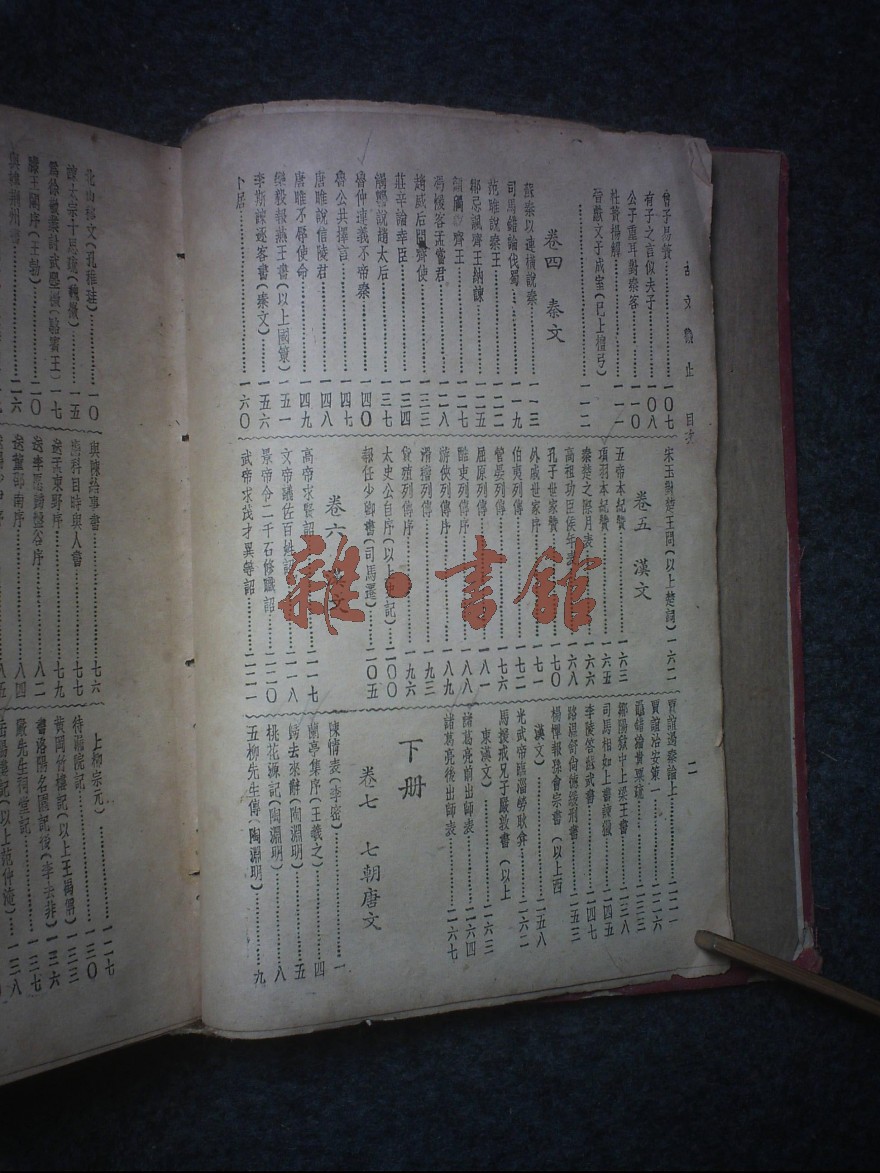 古文觀止 目次
二
曾子易簀……一〇七
有子之言似夫子……一〇八
公子重耳對秦客……一一〇
杜蕢揚觶……一一一
晉獻文子成室(已上檀弓)……一一二
卷四 秦文
蘇秦以連橫說秦……一一三
司馬錯論伐蜀……一一九
范雎說秦王……一二二
鄒忌諷齊王納諫……一二五
顏斶說齊王……一二七
馮煖客孟嘗君……一二八
趙威后問齊使……一三二
莊辛論幸臣……一三四
觸讋說趙太后……一三七
魯仲連義不帝秦……一四〇
魯公共擇言……一四七
唐雎說信陵君……一四八
唐雎不辱使命……一四九
樂毅報燕王書(以上國策)……一五一
李斯諫逐客書(秦文)……一五六
卜居……一六〇
宋玉對楚王問(以上楚詞)一六二
卷五 漢文
五帝本紀贊……一六三
項羽本紀贊……一六五
秦楚之際月表……一六六
高祖功臣侯年表……一六八
孔子世家贊……一七〇
外戚世家序……一七一
伯夷列傳……一七二
管晏列傳……一七七
屈原列傳……一八一
酷吏列傳序……一八八
游俠列傳序……一八九
滑稽列傳……一九三
貨殖列傳序……一九六
太史公自序(以上 記)……二〇〇
報任少卿書(司馬遷)……二〇五
卷六 漢文
高帝求賢詔……二一七
文帝議佐百姓詔……二一八
景帝令二千石修職詔……二二〇
武帝求茂才異等詔……二二一
賈誼過秦論上……二二一
賈誼治安策一……二二六
鼂錯論貴粟疏……二三三
鄒陽獄中上梁王書……二三八
司馬相如上書諫獵……二四五
李陵答蘇武書……二四七
路溫舒尚德緩刑書……二五三
楊惲報孫會宗書(以上西
漢文)……二五八
光武帝臨淄勞耿弇……二六二
馬援戒兄子嚴敦書(以上
東漢文)……二六三
諸葛亮前出師表……二六四
諸葛亮後出師表……二六七
下册
卷七 七朝唐文
陳情表(李密)……一
蘭亭集序(王羲之)……四
歸去來辭(陶淵明)……五
桃花源記(陶淵明)……八
五柳先生傳(陶淵明)……九
北山移文(孔稚珪)……一〇
諫太宗十思疏(魏徵)……一五
爲徐敬業討武曌檄(駱賓王)一七
滕王閣序(王勃)……二〇
與韓荊州書……二六
與陳給事書……七六
應科目時與人書……七七
送孟東野序……七九
送李愿歸盤谷序……八二
送董邵南序……八四
八五
上柳宗元)……一一七
待漏院記……一三〇
黃岡竹樓記(以上王禹偁)一三三
書洛陽名園記後(李去非)一三六
嚴先生祠堂記……一三七
岳陽樓記(以上范仲淹)……一三八
雜·書館